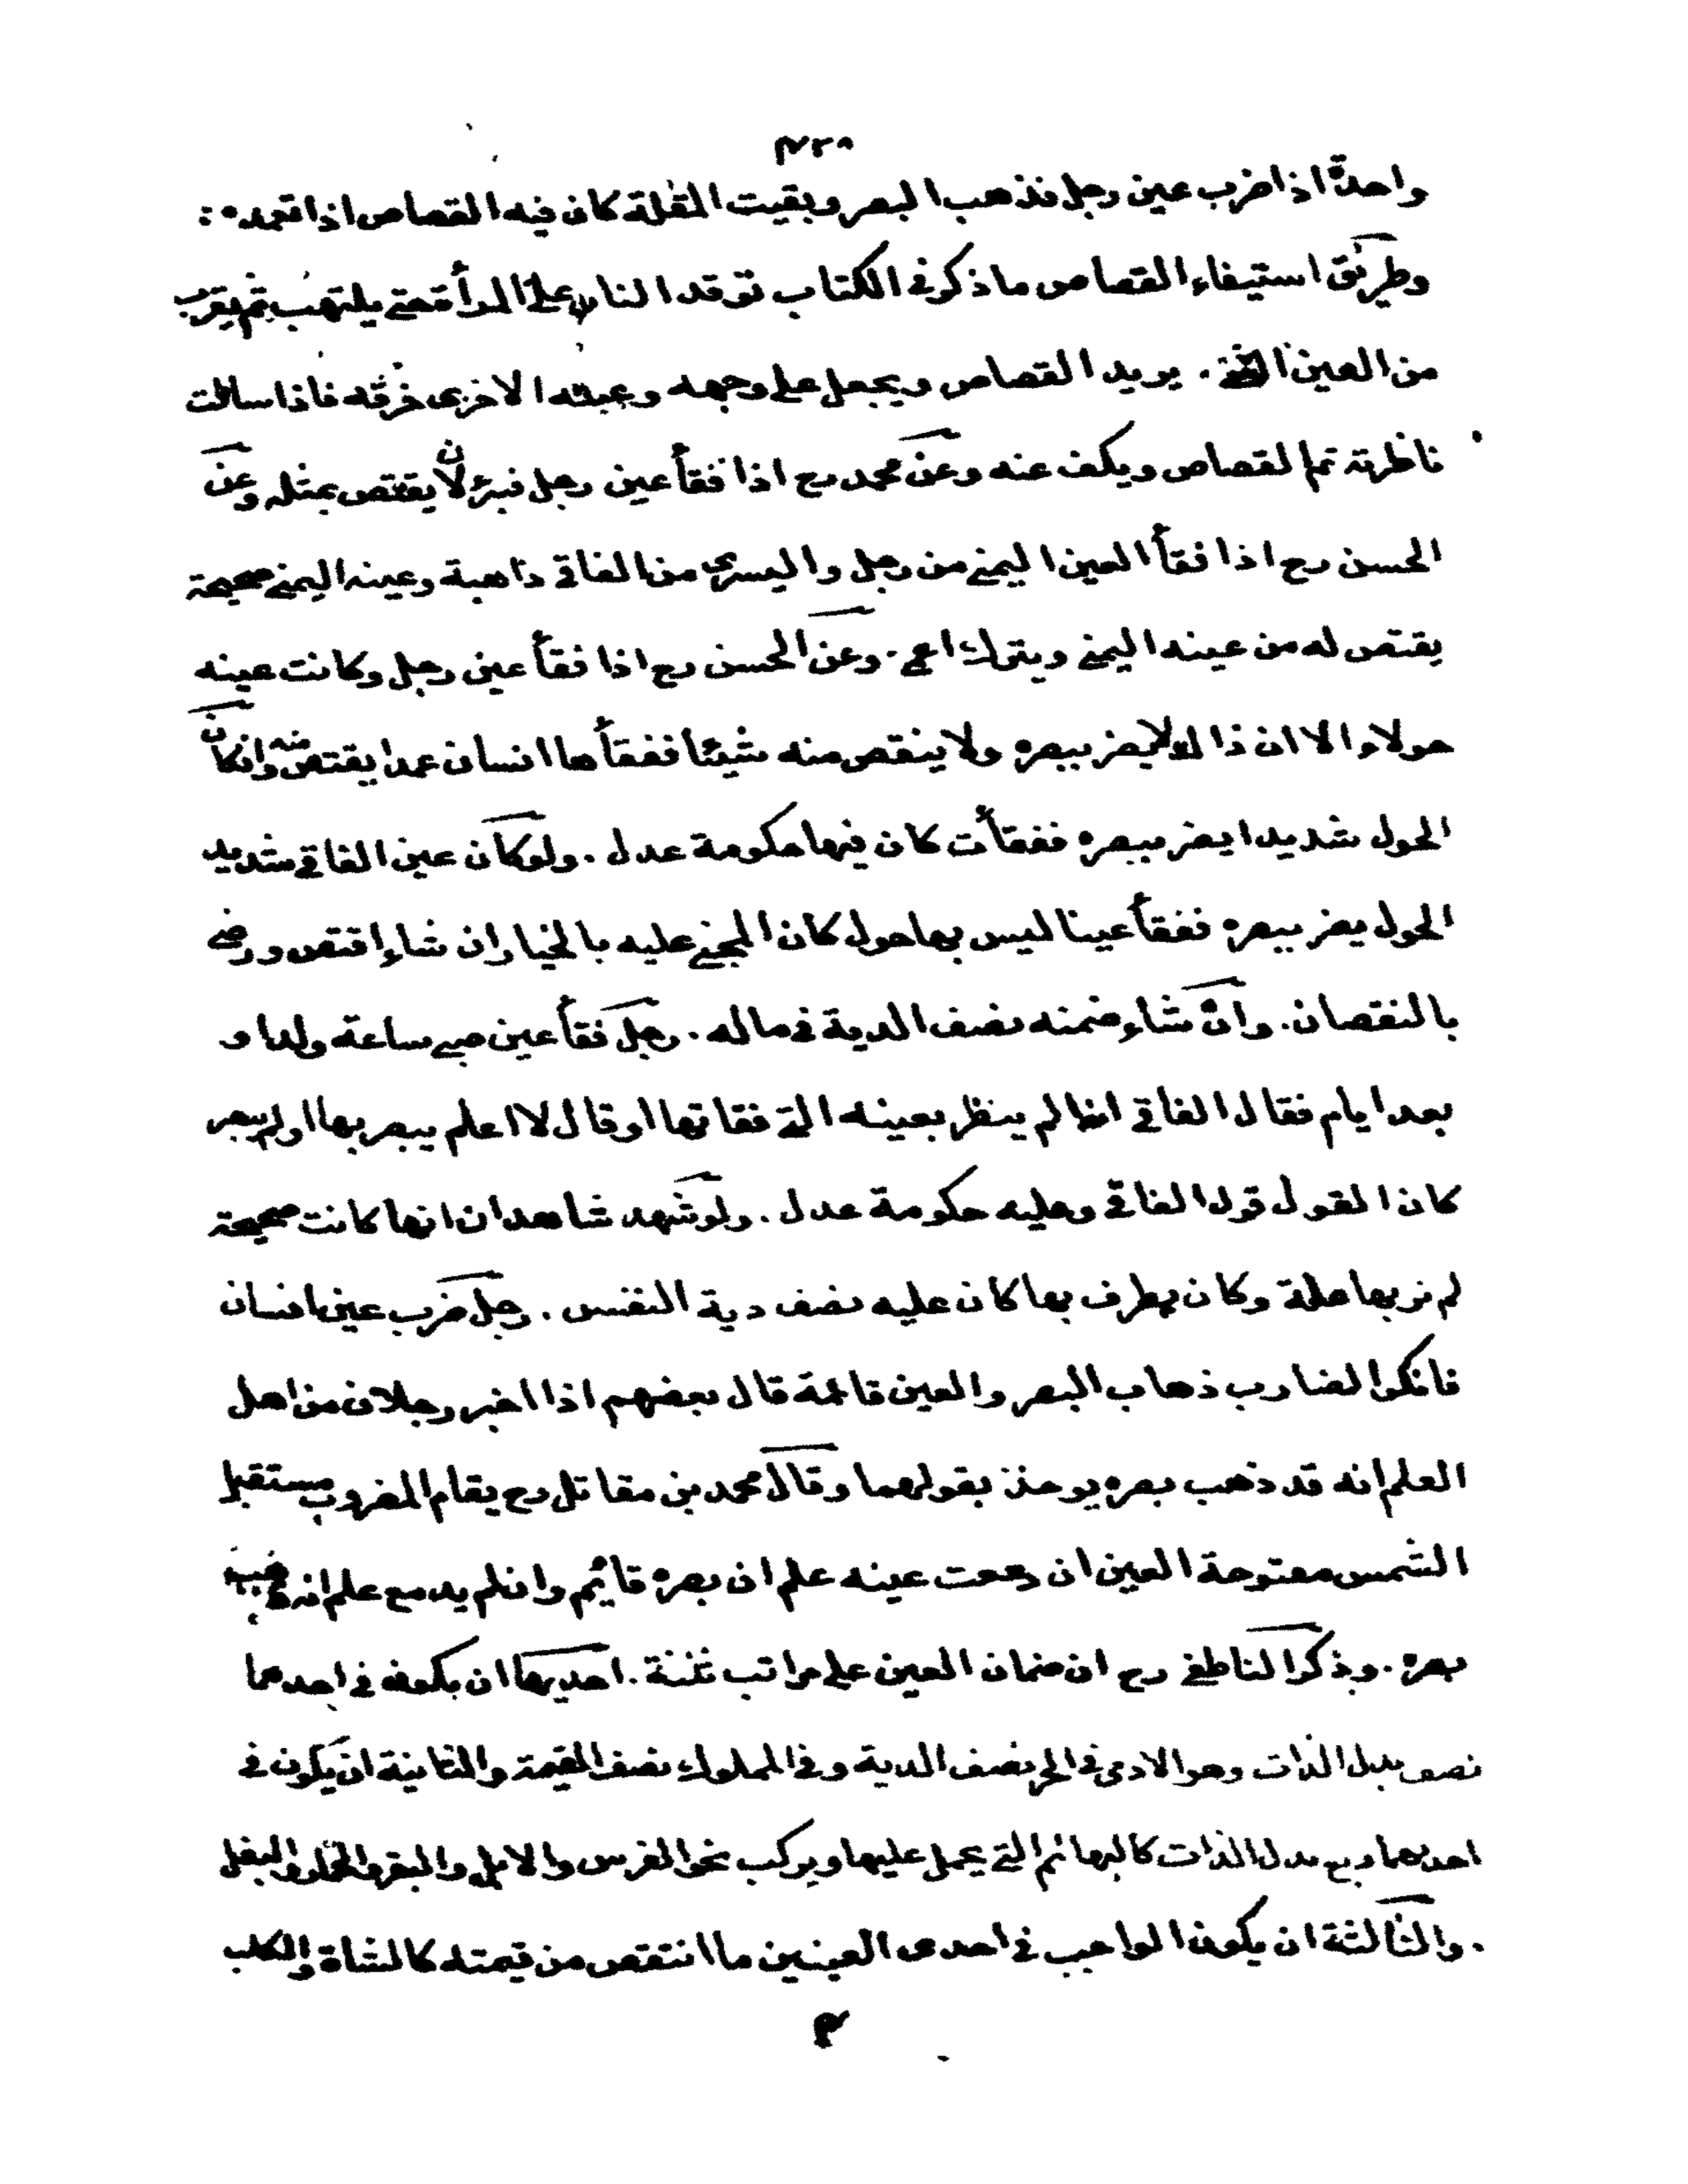 ٤٢٨
واحدة اذا ضرب عين رجل فذهب البصر وبقيت المقلة كان فيه القصاص اذا تعمده :
وطريق استيفاء القصاص ما ذكر في الكتاب توقد النار على المرأة حتى يلتهب ثم يقرب
من العين التي . يريد القصاص ويجعل على وجهه وعينه الاخرى خرقه فاذا سالت
ناظرته تم القصاص ويكف عنه وعن محمد رح اذا فقأ عين رجل فبرئ لان يقتص بمثله وعن
الحسن رح اذا فقأ العين اليمنى من رجل واليسرى من الفاقئ ذاهبة وعينه اليمنى صحيحة
يقتص له من عينه اليمنى ويترك اعمى . وعن الحسن رح اذا فقأ عين رجل وكانت عينه
حولاء الا ان ذا لا يضر ببصره ولا ينقص منه شيئا ففقأها انسان عمدا يقتص منه وان كان
الحول شديدا يضر ببصره ففقأت كان فيها حكومة عدل . ولو كان عين الفاقئ شديد
الحول يضر ببصره ففقأ عينا ليس بها حول كان المجني عليه بالخيار ان شاء اقتص ورضى
بالنقصان . وان شاء ضمنه نصف الدية في ماله . رجل فقأ عين صبي ساعة ولد او
بعد ايام فقال الفاقئ انها لم ينظر بعينه التي فقاتها او قال لا اعلم يبصر بها او لم يبصر
كان القول قول الفاقئ وعليه حكومة عدل . ولو شهد شاهدان انها كانت صحيحة
لم نر بها علة وكان يطرف بها كان عليه نصف دية النفس . رجل ضرب عين انسان
فانكر الضارب ذهاب البصر والعين قائمة قال بعضهم اذا اخبر رجلان من اهل
العلم انه قد ذهب بصره يوخذ بقولهما وقال محمد بن مقاتل رح يقام المضروب مستقبل
الشمس مفتوحة العين ان دمعت عينه علم ان بصره قائم وان لم يدمع علم انه ذهب
بصره . وذكر الناطفي رح ان ضمان العين على مراتب ثلثة . احديها ان يكون في احدهما
نصف بدل الذات وهو الادمى في الحر نصف الدية وفي المملوك نصف القيمة والثانية ان يكون في
احديهما ربع بدل الذات كالبهائم التي يحمل عليها ويركب نحو الفرس والابل والبقر والبغل
. والثالثة ان يكون الواجب في احدى العينين ما انتقص من قيمته كالشاة والكلب